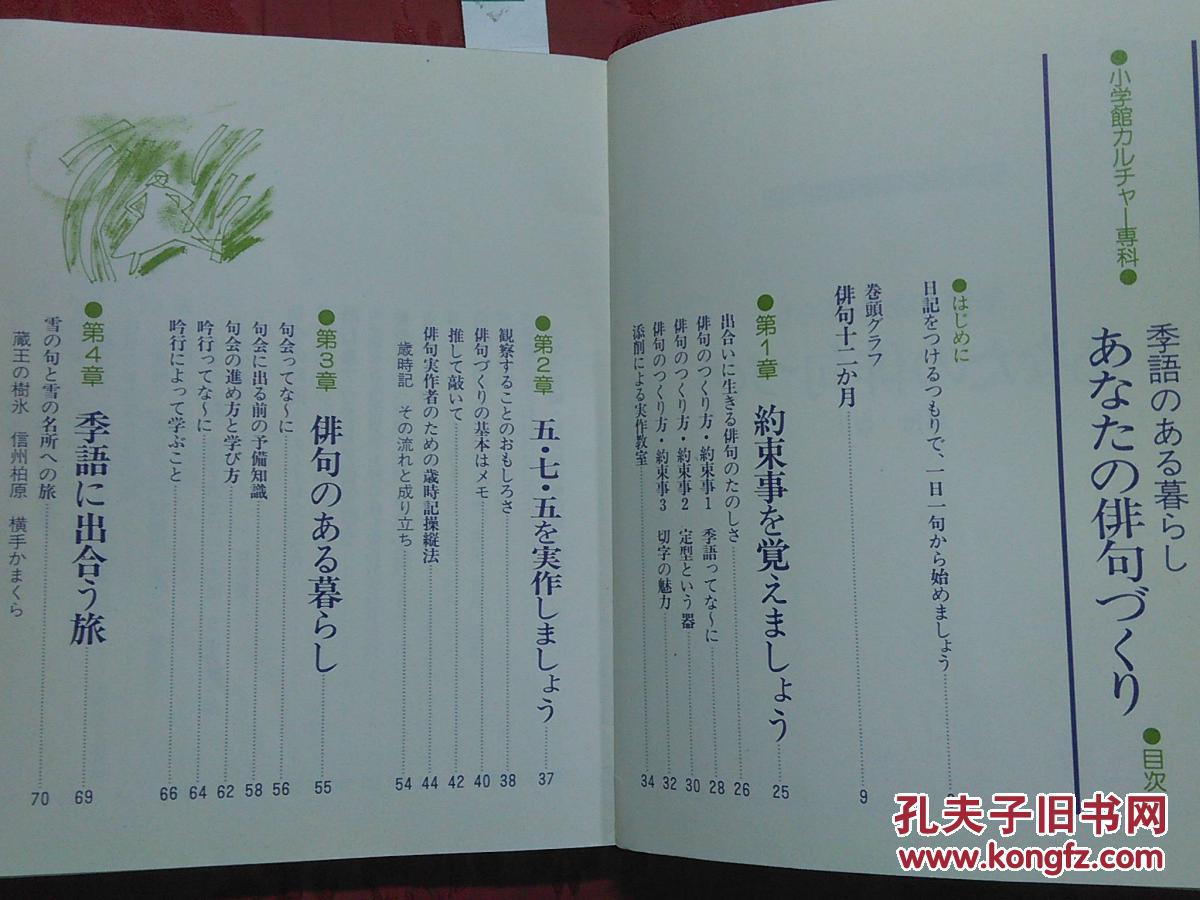 ●小学館カルチャー専科●
季語のある暮らし
あなたの俳句づくり
●目次
●はじめに
日記をつけるつもりで、一日一句から始めましょう
巻頭グラフ
俳句十二か月 9
●第1章 約束事を覚えましょう 25
出合いに生きる俳句のたのしさ 26
俳句のつくり方・約束事1 季語ってな〜に 28
俳句のつくり方・約束事2 定型という器 30
俳句のつくり方・約束事3 切字の魅力 32
添削による実作教室 34
●第2章 五・七・五を実作しましょう 37
観察することのおもしろさ 38
俳句づくりの基本はメモ 40
推して敲いて 42
俳句実作者のための歳時記操縦法 44
歳時記 その流れと成り立ち 54
●第3章 俳句のある暮らし 55
句会ってな〜に 56
句会に出る前の予備知識 58
句会の進め方と学び方 62
吟行ってな〜に 64
吟行によって学ぶこと 66
●第4章 季語に出合う旅 69
雪の句と雪の名所への旅 70
蔵王の樹氷 信州柏原 横手かまくら
孔夫子旧书网
www.kongfz.com